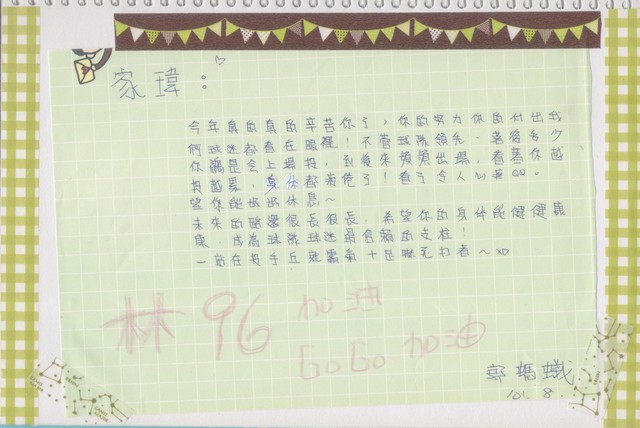 家瑋：
今年真的真的辛苦你了，你的努力你的付出我
們球迷都看在眼裡！不管球隊領先、落後多少
你總是會上場投，到後來頻頻出場，看著你越
投越累，身体都疲倦了！看了令人心疼QQ。
望你能好好休息～
未來的路還很長很長，希望你的身体能健健康
康，成為球隊球迷最信賴的支柱！
一站在投手丘就霸氣十足無打者～XD
林 96 加油
GoGo 加油
101. 8.